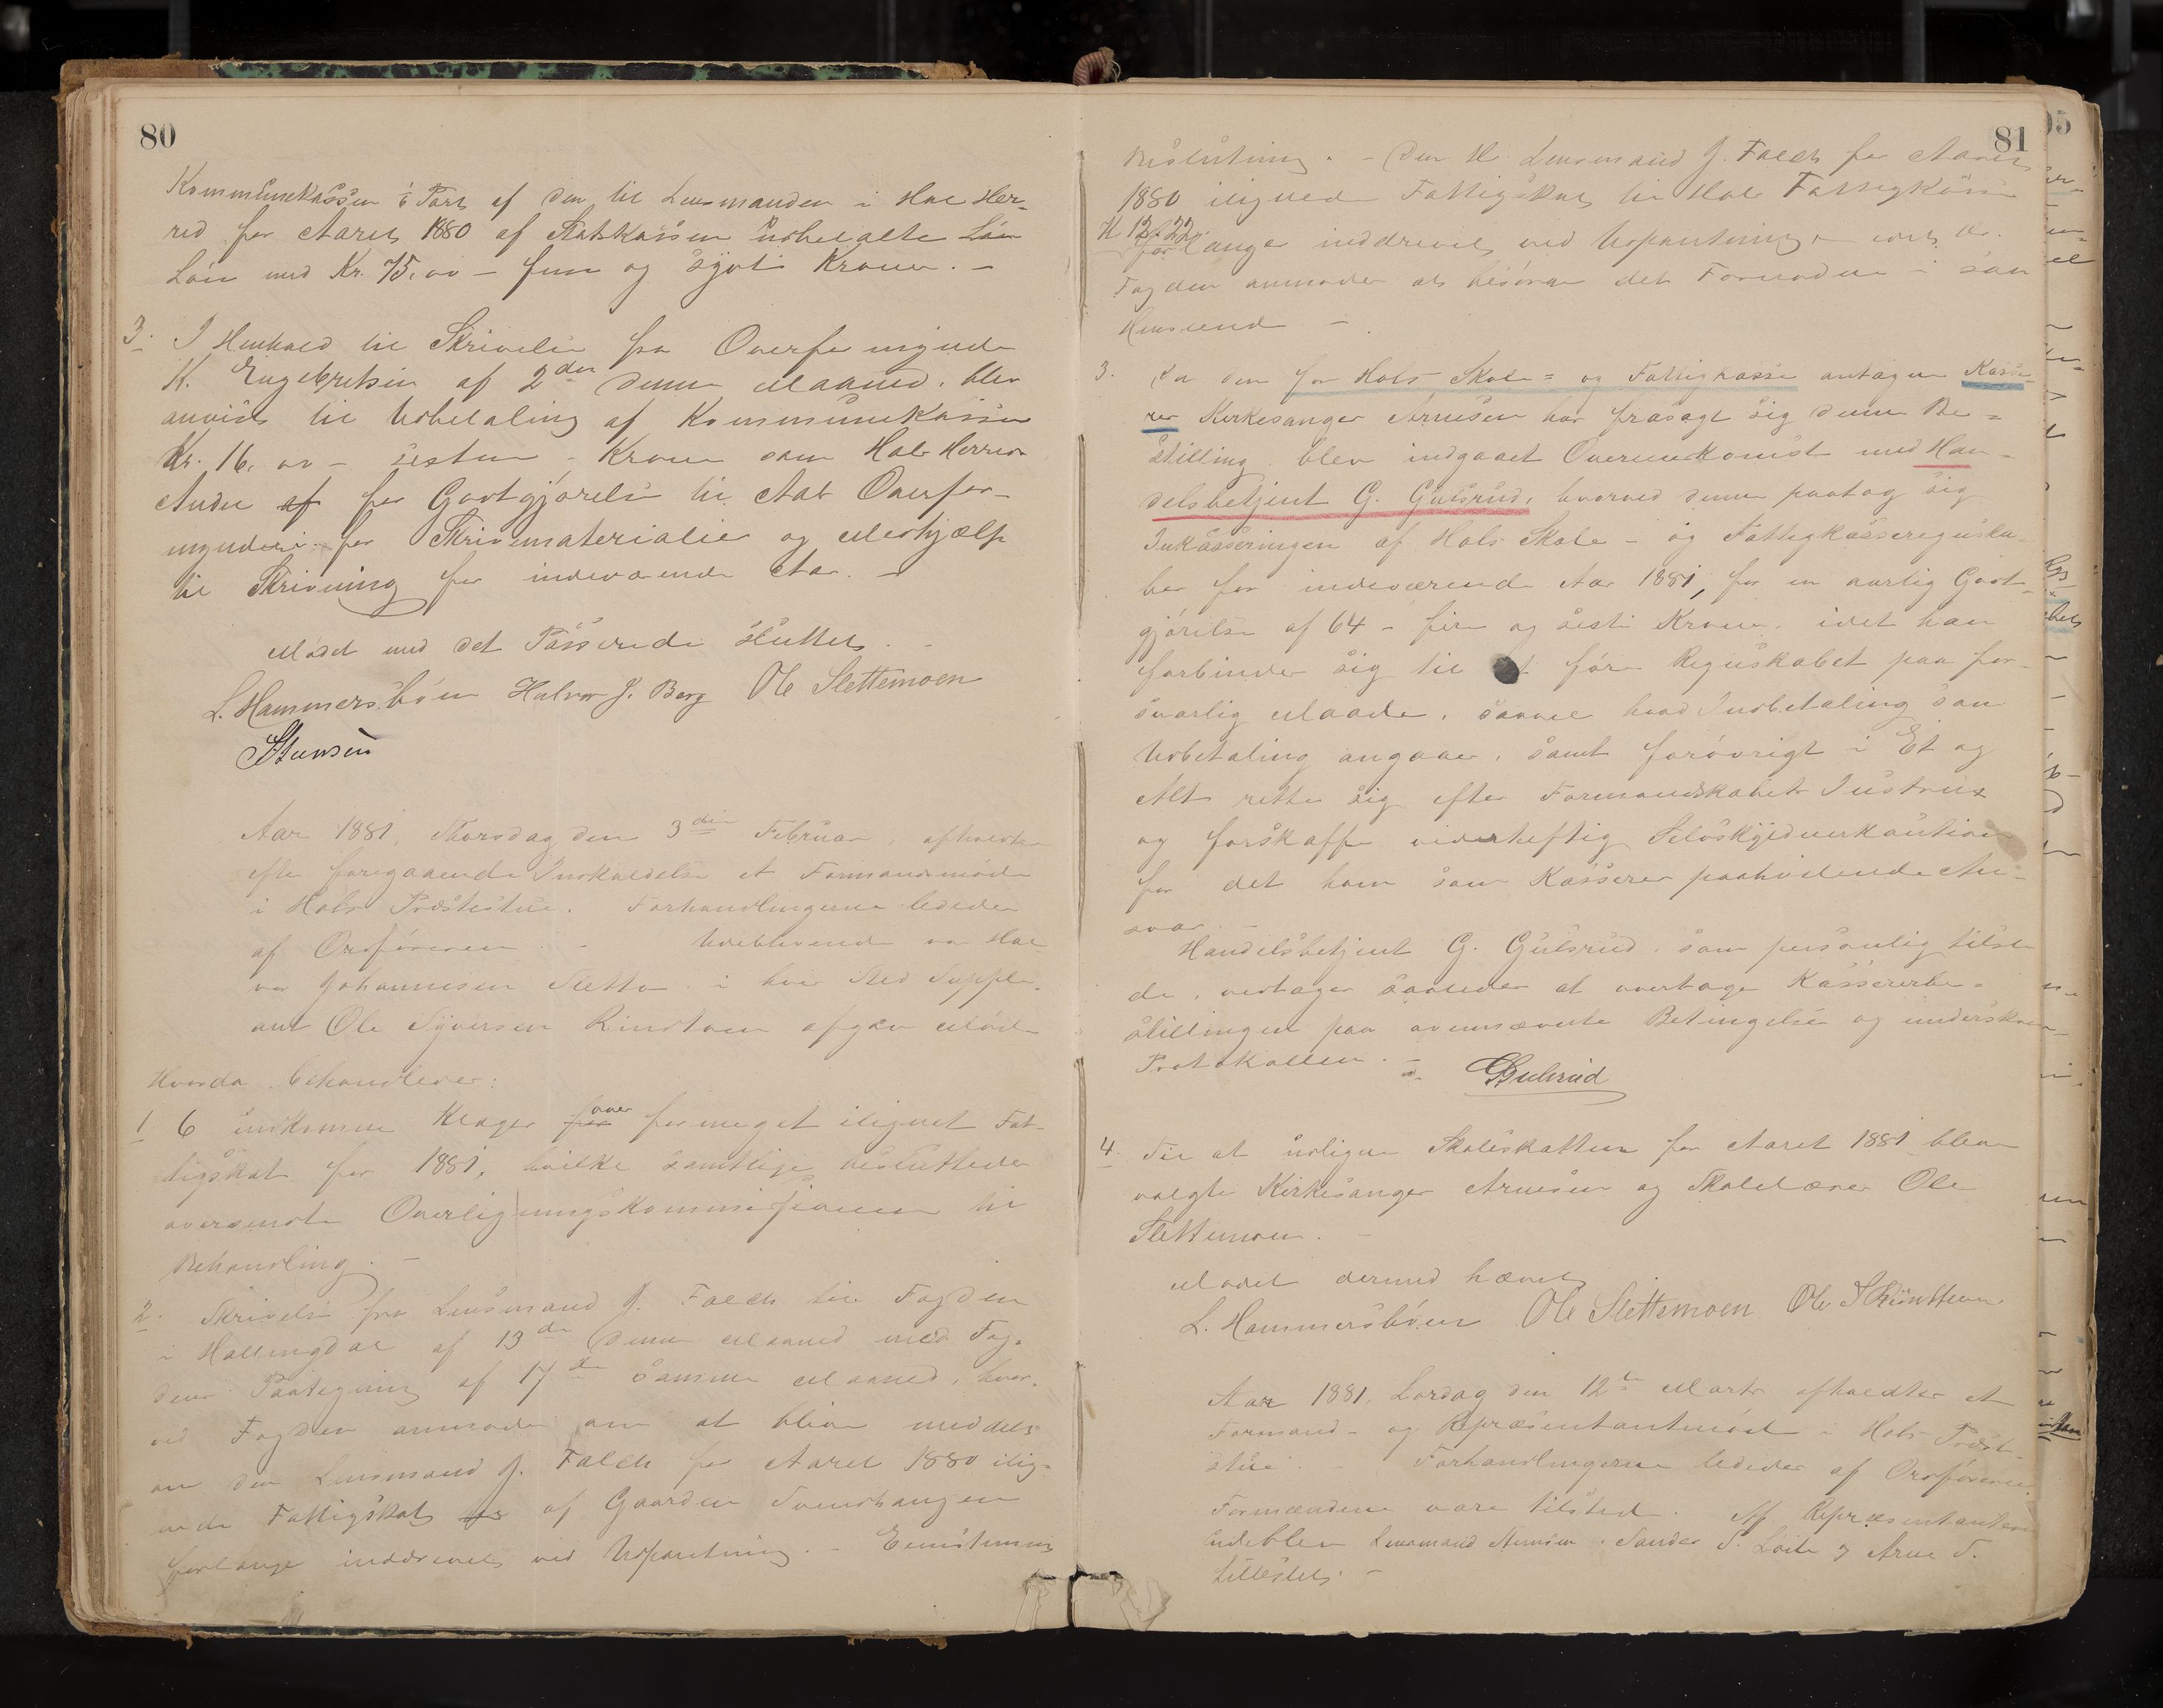 80
Kommunekassen ⅓ Part af den til Lensmanden i Hol Her-
red for Aaret 1880 af Statskassen udbetalte Løn
Løn med Kr. 75,00 – fem og sytti Kroner. –
3. I Henhold til Skrivelse fra Overformynder
K. Engebretsen af 2den denne Maaned, blev
anvist til Udbetaling af Kommunekassen
Kr. 16,00 – sexten – Kroner som Hols Herreds
Andel af for Godtgjørelse til Aals Overfor-
mynderi for Skrivematerialier og Medhjælp
til Skrivning for indeværende Aar. –
Mødet med det Passerede sluttet. –
L. Hammersbøen Halvor J. Berg Ole Slettemoen
Stensen
Aar 1881, Thorsdag den 3die Februar, afholdtes
efter foregaaende Indkaldelse et Formandsmøde
i Hols Præstestue. Forhandlingerne lededes
af Ordføreren. – Udeblivende var Hal-
vor Johannesen Sletto i hvis Sted Supple-
ant Ole Syversen Rindtuen afgav Møde
Hvorda behandledes:
1. 6 indkomne Klager for over formeget ilignet Fat-
tigskat for 1881, hvilke samtlige besluttedes
oversendt Overligningskommissionen til
Behandling. –
2. Skrivelse fra Lensmand J. Falch til Fogden
i Hallingdal af 13de denne Maaned med Fog-
dens Paategning af 17de samme Maaned, hvor-
ved Fogden anmoder om at blive meddelt
om den Lensmand J. Falch for Aaret 1880 ilig-
nede Fattigskat for af Gaarden Svendhaugen
forlanges inddrevet ved Udpantning. – Eenstemmig
81
Beslutning. – Den Hr. Lensmand J. Falch for Aaret
1880 ilignede Fattigskat til Hols Fattigkasse
K 12.22
forlanges inddrevet ved Udpantning, – idet Hr.
Fogden anmodes at besørge det Fornødne i saa
Henseend –
3. Da den for Hols Skole= og Fattigkasse antagne Kasse-
rer Kirkesanger Arnesen har frasagt sig denne Be=
stilling, blev indgaaet Overenskomst med Han-
delsbetjent G. Gulsrud, hvorved denne paatog sig
Inkasseringen af Hols Skole – og Fattigkasseregnska-
ber for indeværende Aar 1881, for en aarlig Godt-
gjørelse af 64 – fire og sexti Kroner, idet han
forbinder sig til at føre Regnskabet paa for-
svarlig Maade, saavel hvad Indbetaling som
Udbetaling angaaer, samt forøvrigt i Et og
Alt rette sig efter Formandskabets Instrux
og forskaffe vederheftig Selvskyldnerkaution
for det ham som Kasserer paahvilende An-
svar. –
Handelsbetjent G. Gulsrud, som personlig tilste-
de, vedtager saaledes at overtage Kassererbe=
stillingen paa ovennævnte Betingelse og underskrev
Protokollen. –
G Gulsrud
4. Til at udligne Skoleskatten for Aaret 1881 blev
valgte Kirkesanger Arnesen og Skolelærer Ole
Slettemoen. –
Mødet dermed hævet
L. Hammersbøen Ole Slettemoen Ole S Rindtuen
Aar 1881, Lørdag den 12te Marts afholdtes et
Formand- og Repræsentantmøde i Hols Præste-
stue. – Forhandlingerne lededes af Ordføreren.
Formændene vare tilsted. Af Repræsentanterne
udeblev Lensmand Stensen, Sander S. Loile og Arne T.
Lilleslet. –